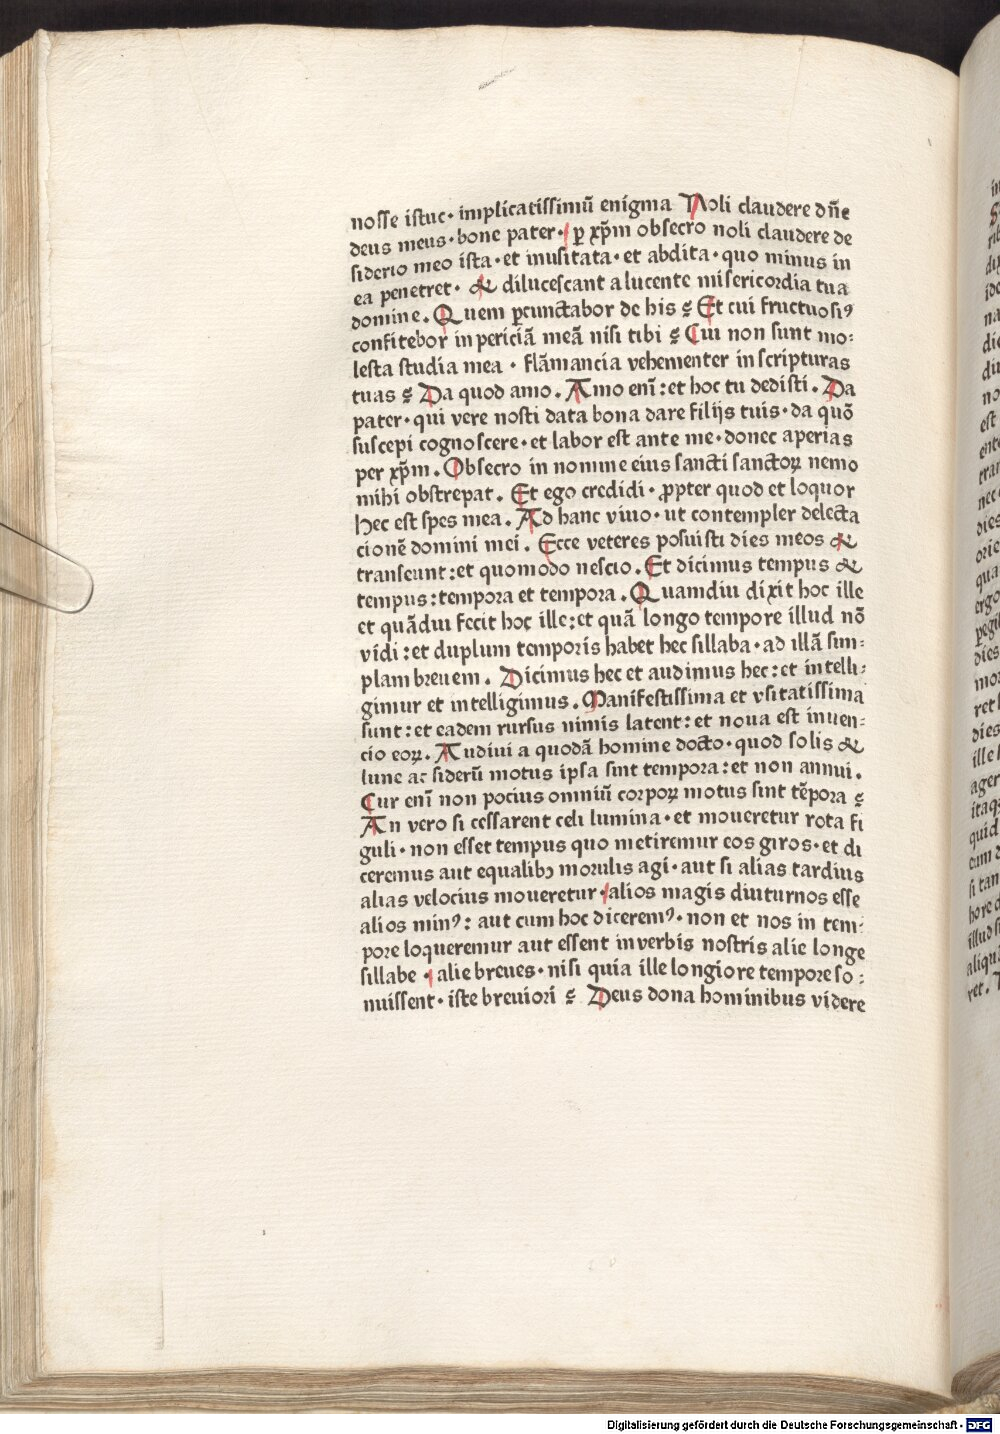 nosse istuc· implicatissimū enigma Noli claudere dn̄e
deus meus· bone pater· ꝑ xp̄m obsecro noli claudere de
siderio meo ista· et inusitata· et abdita· quo minus in
ea penetret· & dilucescant a lucente misericordia tua
domine. Quem ꝑcunctabor de his ? Et cui fructuosiꝰ
confitebor inpericiā meā nisi tibi ? Cui non sunt mo:
lesta studia mea · flāmancia vehementer in scripturas
tuas ? Da quod amo. Amo enī: et hoc tu dedisti. Da
pater· qui vere nosti data bona dare filijs tuis· da quō
suscepi cognoscere· et labor est ante me· donec aperias
per xp̄m. Obsecro in nomine eius sancti sanctoꝝ nemo
mihi obstrepat. Et ego credidi· ꝓpter quod et loquor
hec est spes mea. Ad hanc viuo· ut contempler delecta
cionē domini mei. Ecce veteres posuisti dies meos &
transeunt: et quomodo nescio. Et dicimus tempus &
tempus: tempora et tempora. Quamdiu dixit hoc ille
et quādiu fecit hoc ille: et quā longo tempore illud nō
vidi: et duplum temporis habet hec sillaba· ad illā sim:
plam breuem. Dicimus hec et audimus hec: et intelli:
gimur et intelligimus. Manifestissima et vsitatissima
sunt: et eadem rursus nimis latent: et noua est inuen:
cio eoꝝ. Audiui a quodā homine docto· quod solis &
lune ac siderū motus ipsa sint tempora: et non annui.
Cur enī non pocius omniū corpoꝝ motus sint tēpora ?
An vero si cessarent celi lumina· et moueretur rota fi
guli· non esset tempus quo metiremur eos giros· et di
ceremus aut equalibꝫ morulis agi· aut si alias tardius
alias velocius moueretur· alios magis diuturnos esse
alios minꝰ: aut cum hoc diceremꝰ· non et nos in tem:
pore loqueremur aut essent in verbis nostris alie longe
sillabe · alie breues· nisi quia ille longiore tempore so:
nuissent· iste breuiori ? Deus dona hominibus videre
Digitalisierung gefördert durch die Deutsche Forschungsgemeinschaft - DFG